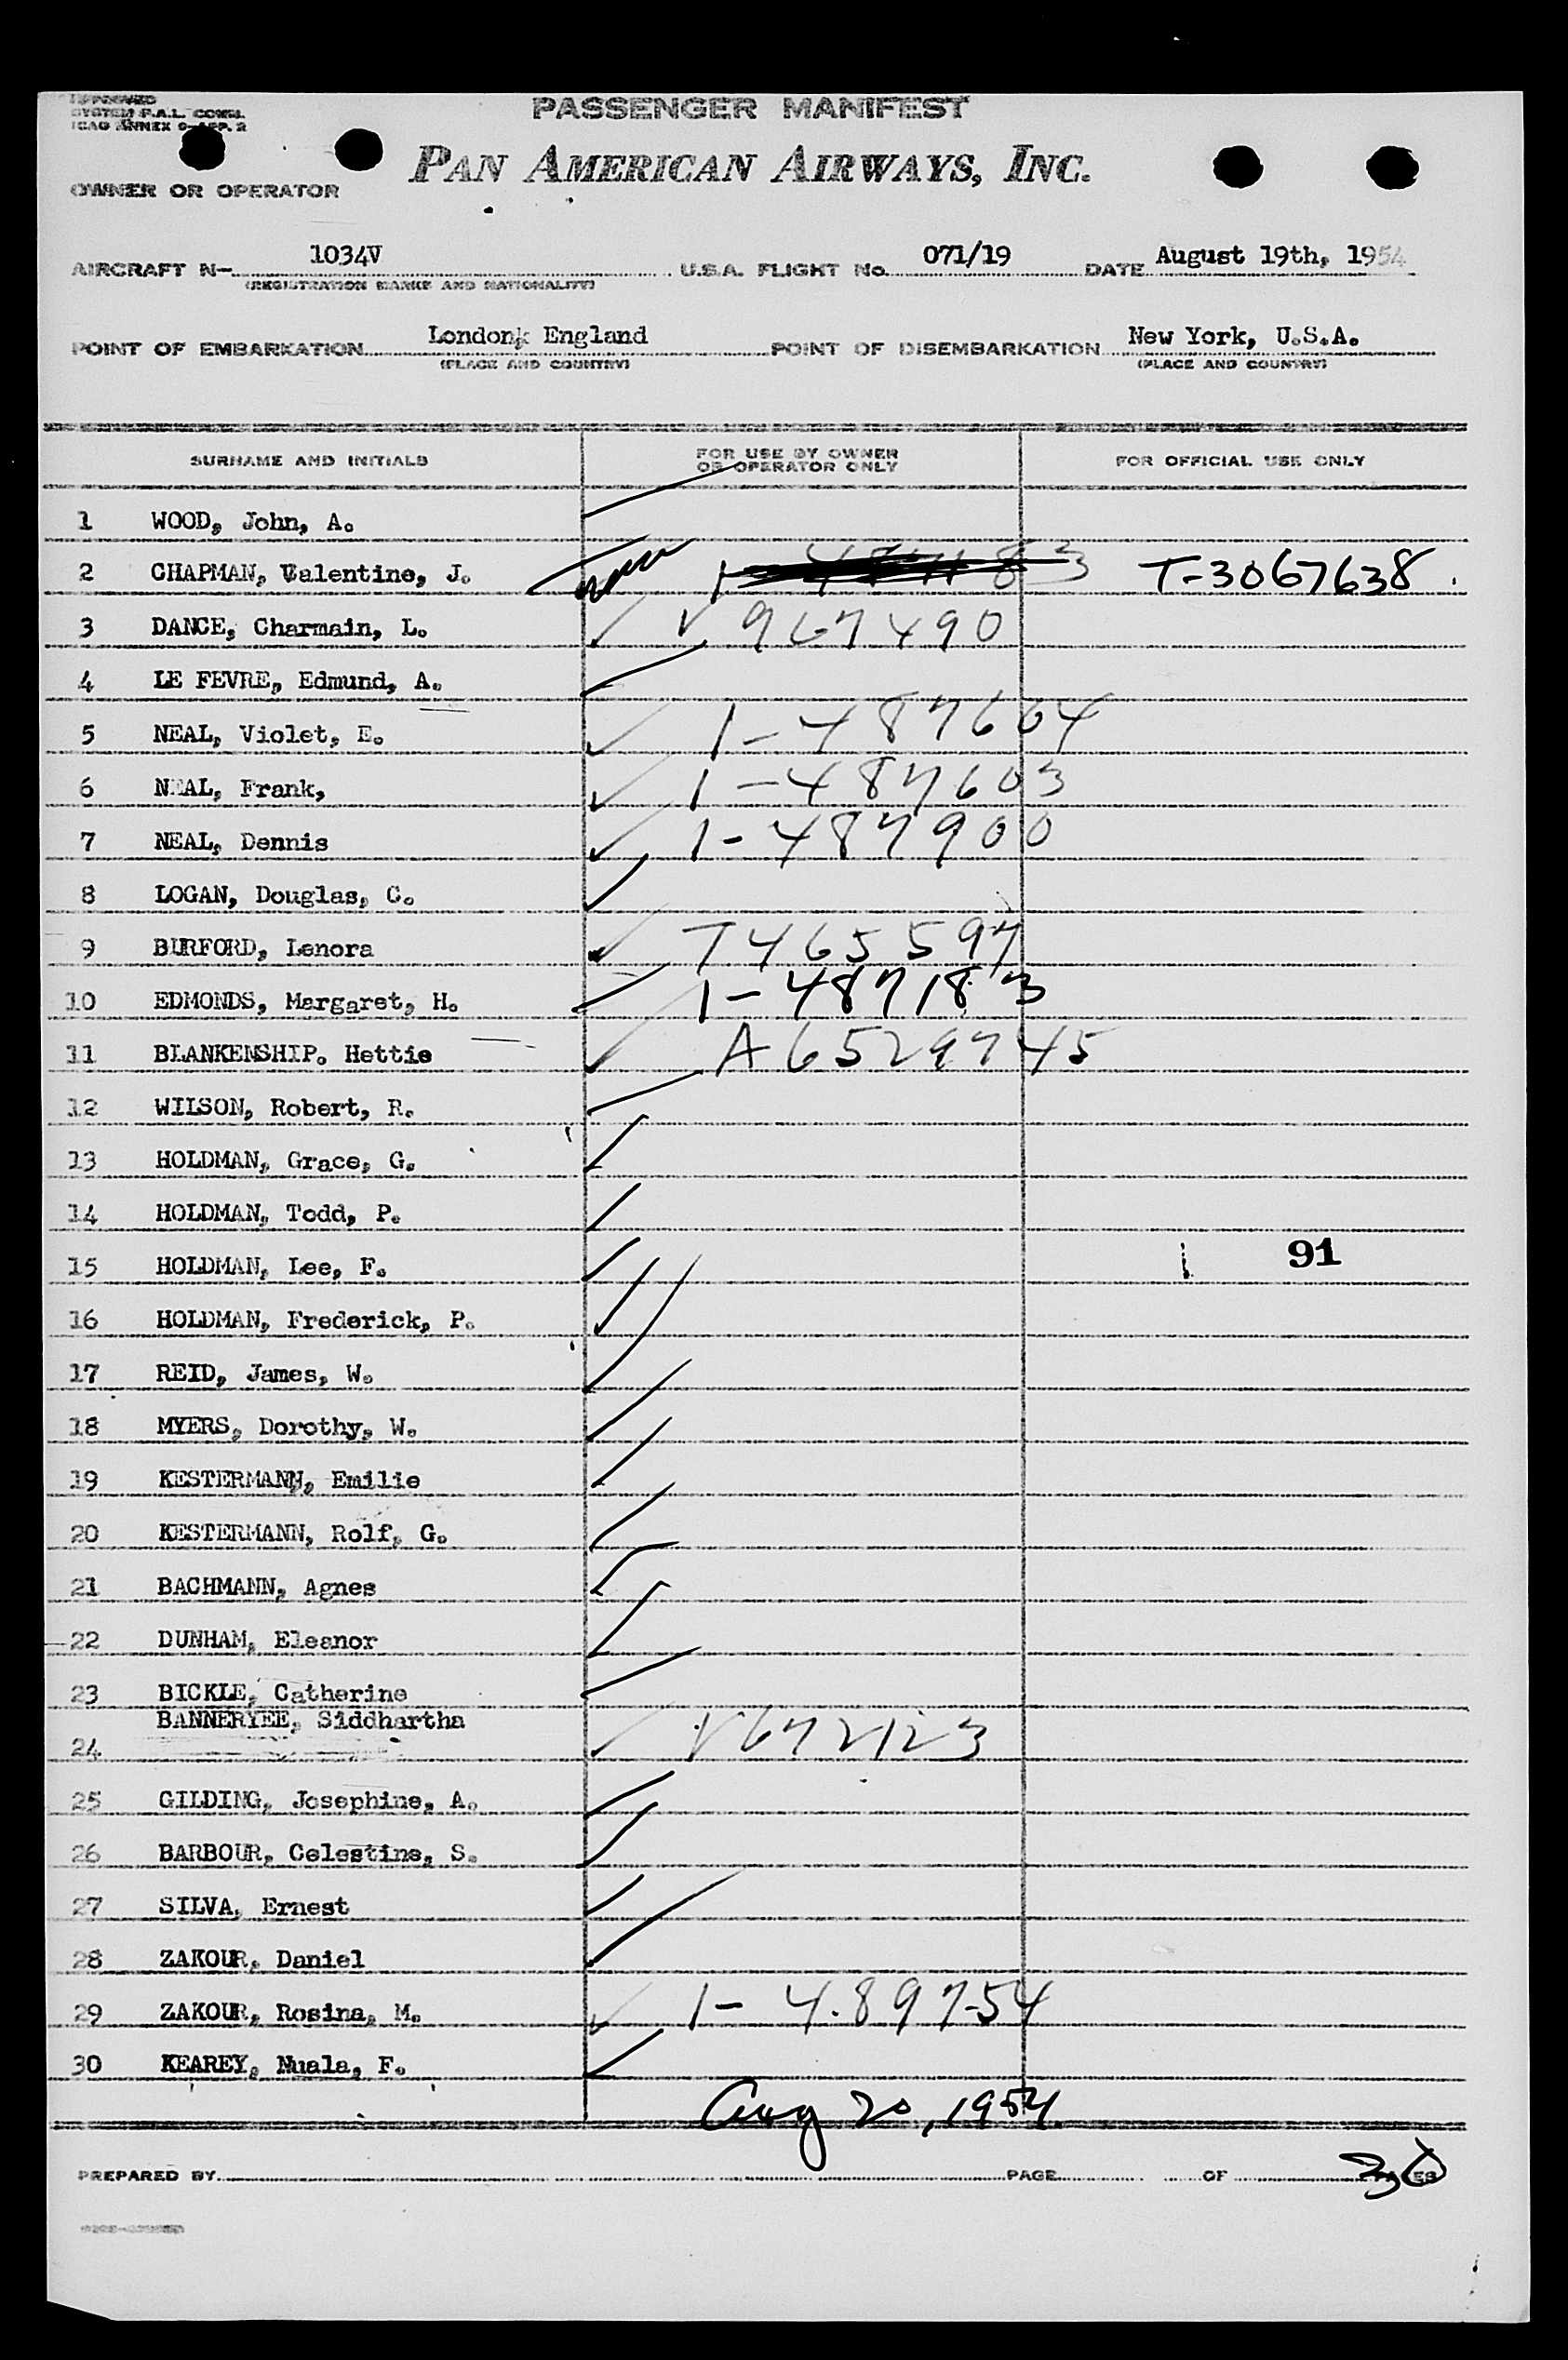 APPROVED
SYSTEM P.A.L. COWSL
ICAO ANNEX 9-APP. 2
PASSENGER MANIFEST
PAN AMERICAN AIRWAYS, INC.
OWNER OR OPERATOR
AIRCRAFT N- 1034V U.S.A. FLIGHT No. 071/19 DATE August 19th, 1954
(REGISTRATION MARKS AND NATIONALITY)
POINT OF EMBARKATION London, England POINT OF DISEMBARKATION New York, U.S.A.
(PLACE AND COUNTRY) (PLACE AND COUNTRY)
SURNAME AND INITIALS FOR USE BY OWNER OR OPERATOR ONLY FOR OFFICIAL USE ONLY
1 WOOD, John, A.
2 CHAPMAN, Valentine, J. T-3067638.
3 DANCE, Charmain, L. V 967490
4 LE FEVRE, Edmund, A.
5 NEAL, Violet, E. 1-487604
6 NEAL, Frank, 1-487603
7 NEAL, Dennis 1-487900
8 LOGAN, Douglas, C.
9 BURFORD, Lenora T465597
10 EDMONDS, Margaret, H. 1-487183
11 BLANKENSHIP. Hettie A6529745
12 WILSON, Robert, R.
13 HOLDMAN, Grace, G.
14 HOLDMAN, Todd, P.
15 HOLDMAN, Lee, F. 91
16 HOLDMAN, Frederick, P.
17 REID, James, W.
18 MYERS, Dorothy, W.
19 KESTERMANN, Emilie
20 KESTERMANN, Rolf, G.
21 BACHMANN, Agnes
22 DUNHAM, Eleanor
23 BICKLE, Catherine
24 BANNERYEE, Siddhartha V672123
25 GILDING, Josephine, A.
26 BARBOUR, Celestine, S.
27 SILVA, Ernest
28 ZAKOUR, Daniel
29 ZAKOUR, Rosina, M. 1-4.89754
30 KEAREY, Nuala, F.
Aug 20, 1954
PREPARED BY PAGE OF PAGES 30